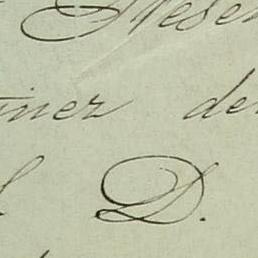 Presen
inez de
l D.